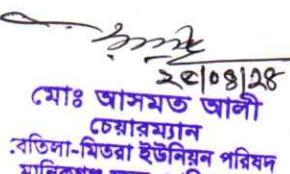 ২৫/০৪/২৪
মোঃ আসমত আলী
চেয়ারম্যান
বেতিলা-মিতরা ইউনিয়ন পরিষদ